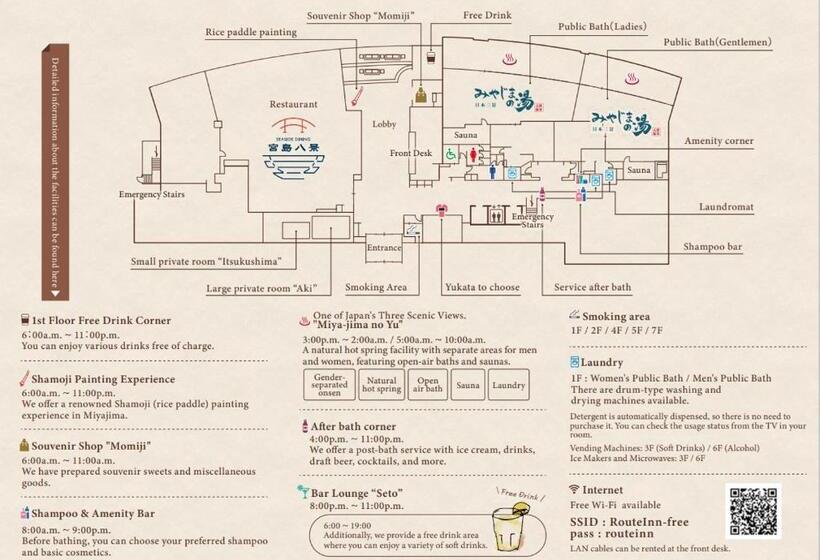 Souvenir Shop "Momiji"
Free Drink
Rice paddle painting
Public Bath(Ladies)
Public Bath(Gentlemen)
Detailed information about the facilities can be found here
Restaurant
SEASIDE DINING
宮島八景
Lobby
Front Desk
みやじまの湯
日本三景
みやじまの湯
日本三景
Sauna
Sauna
Amenity corner
Emergency Stairs
Laundromat
Emergency
Stairs
Entrance
Shampoo bar
Small private room "Itsukushima"
Large private room "Aki"
Smoking Area
Yukata to choose
Service after bath
1st Floor Free Drink Corner
6:00a.m. ~ 11:00p.m.
You can enjoy various drinks free of charge.
Shamoji Painting Experience
6:00a.m. ~ 11:00p.m.
We offer a renowned Shamoji (rice paddle) painting
experience in Miyajima.
Souvenir Shop "Momiji"
6:00a.m. ~ 11:00a.m.
We have prepared souvenir sweets and miscellaneous
goods.
Shampoo & Amenity Bar
8:00a.m. ~ 9:00p.m.
Before bathing, you can choose your preferred shampoo
and basic cosmetics.
One of Japan's Three Scenic Views.
"Miya-jima no Yu"
3:00p.m. ~ 2:00a.m. / 5:00a.m. ~ 10:00a.m.
A natural hot spring facility with separate areas for men
and women, featuring open-air baths and saunas.
Gender-
separated
onsen
Natural
hot spring
Open
air bath
Sauna
Laundry
After bath corner
4:00p.m. ~ 11:00p.m.
We offer a post-bath service with ice cream, drinks,
draft beer, cocktails, and more.
Bar Lounge "Seto"
8:00p.m. ~ 11:00p.m.
Free Drink
6:00 ~ 19:00
Additionally, we provide a free drink area
where you can enjoy a variety of soft drinks.
Smoking area
1F / 2F / 4F / 5F / 7F
Laundry
1F : Women's Public Bath / Men's Public Bath
There are drum-type washing and
drying machines available.
Detergent is automatically dispensed, so there is no need to
purchase it. You can check the usage status from the TV in your
room.
Vending Machines: 3F (Soft Drinks) / 6F (Alcohol)
Ice Makers and Microwaves: 3F / 6F
Internet
Free Wi-Fi available
SSID : RouteInn-free
pass : routeinn
LAN cables can be rented at the front desk.